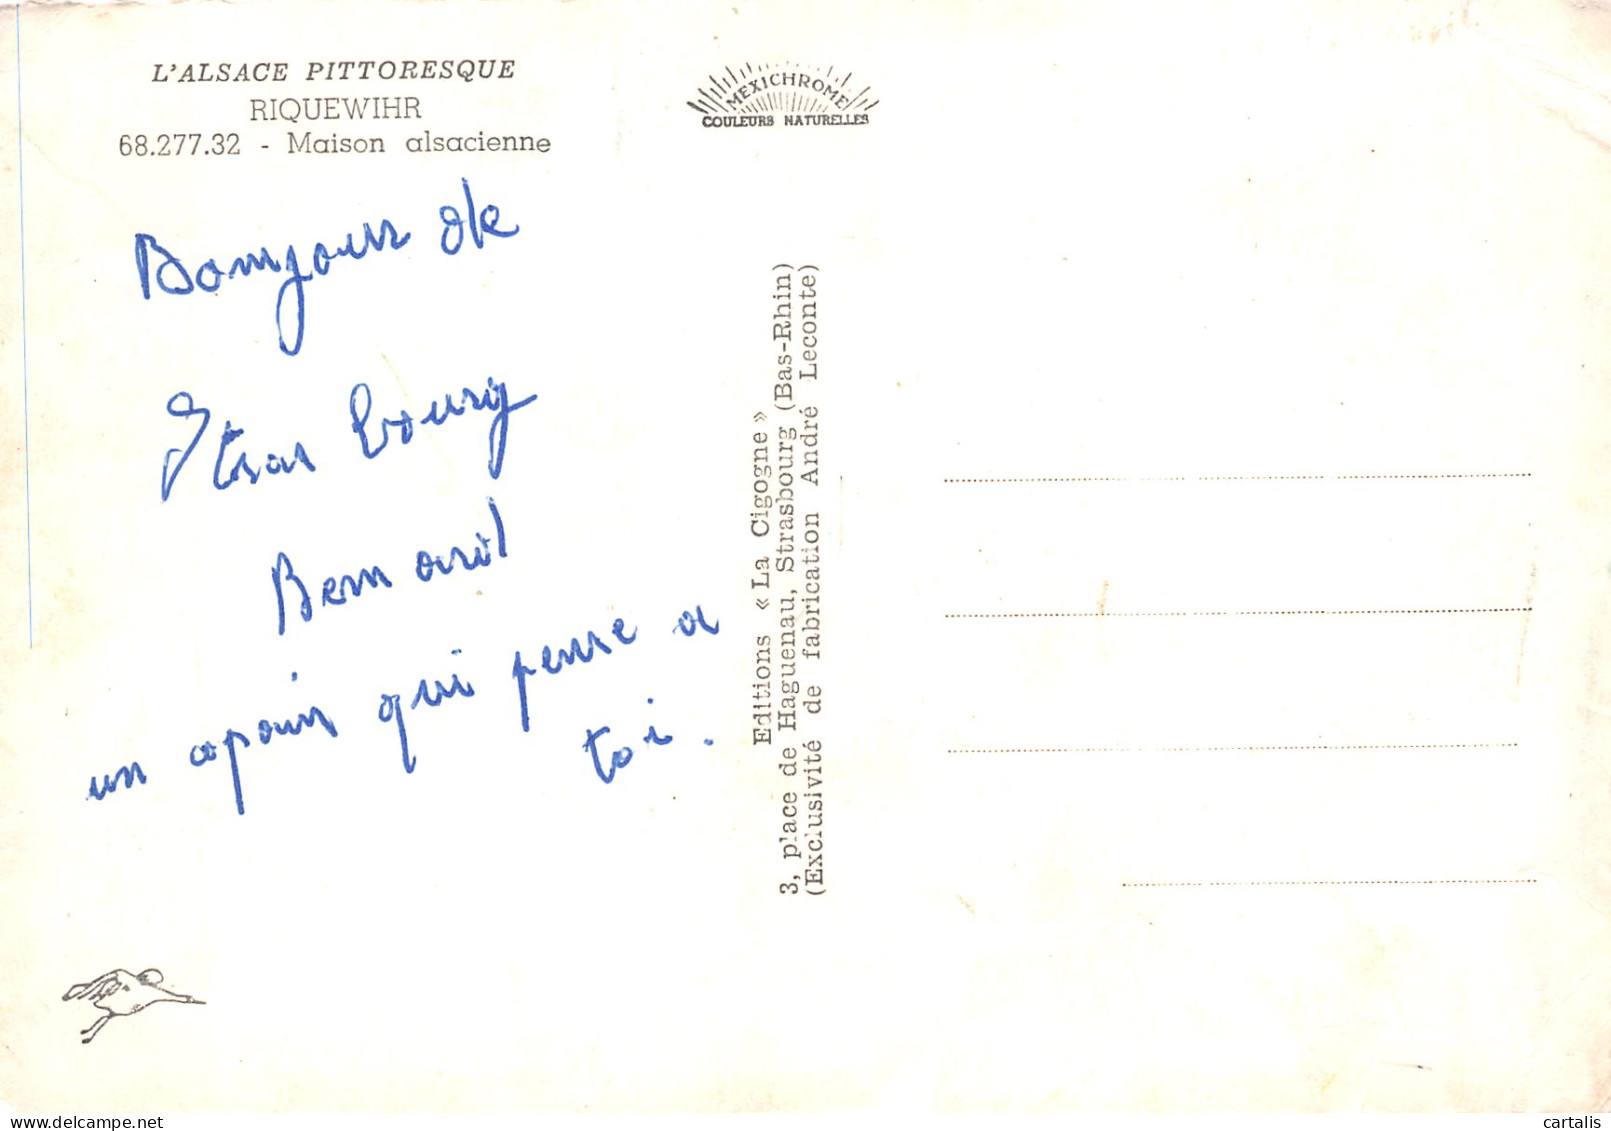 L'ALSACE PITTORESQUE
RIQUEWIHR
68.277.32 - Maison alsacienne
MEXICHROME
COULEURS NATURELLES
Bonjour de
Strasbourg
Bernard
un copain qui pense a
toi.
Editions « La Cigogne »
3, place de Haguenau, Strasbourg (Bas-Rhin)
(Exclusivité de fabrication André Leconte)
cartalis